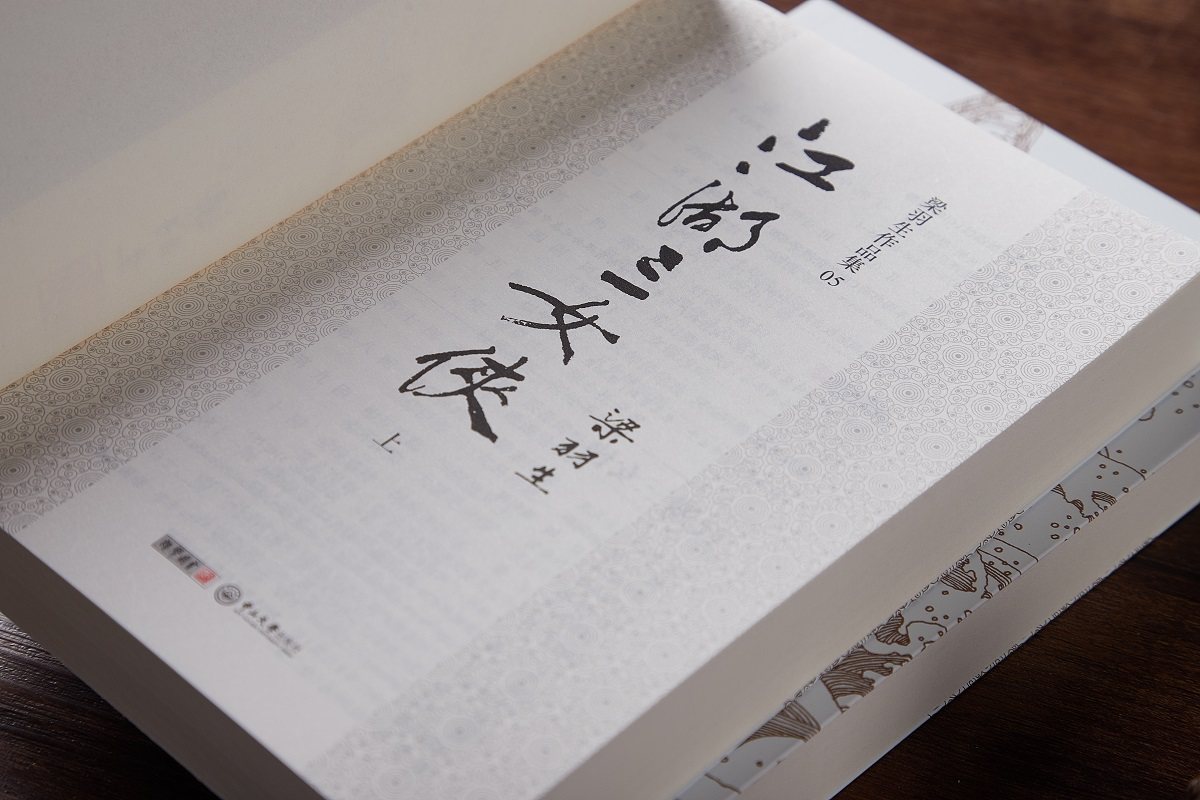 梁羽生作品集 05
江湖三女侠
梁羽生
上
中山大學出版社